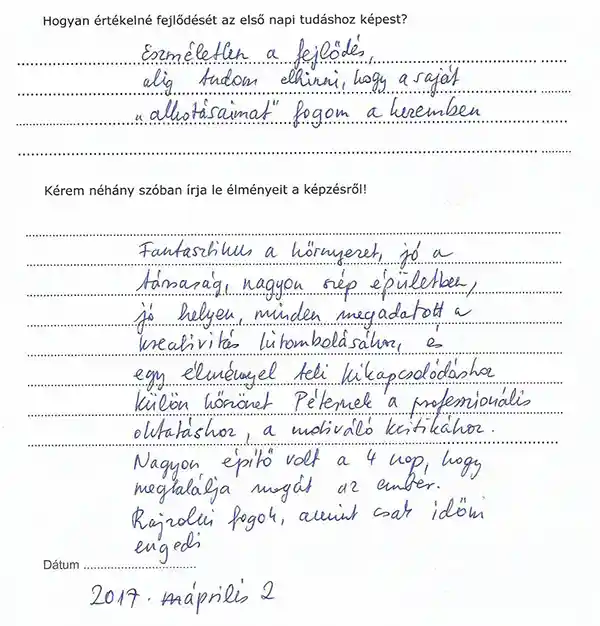 Hogyan értékelné fejlődését az első napi tudáshoz képest?
Eszméletlen a fejlődés,
alig tudom elhinni, hogy a saját
"alkotásaimat" fogom a kezemben
Kérem néhány szóban írja le élményeit a képzésről!
Fantasztikus a környezet, jó a
társaság, nagyon szép épületben,
jó helyen, minden megadatott a
kreativitás kitombolásához, és
egy élménnyel teli kikapcsolódáshoz
külön köszönet Péternek a professzionális
oktatáshoz, a motiváló kritikához.
Nagyon építő volt a 4 nap, hogy
megtalálja magát az ember.
Rajzolni fogok, amint csak időm
engedi
Dátum
2017. április 2